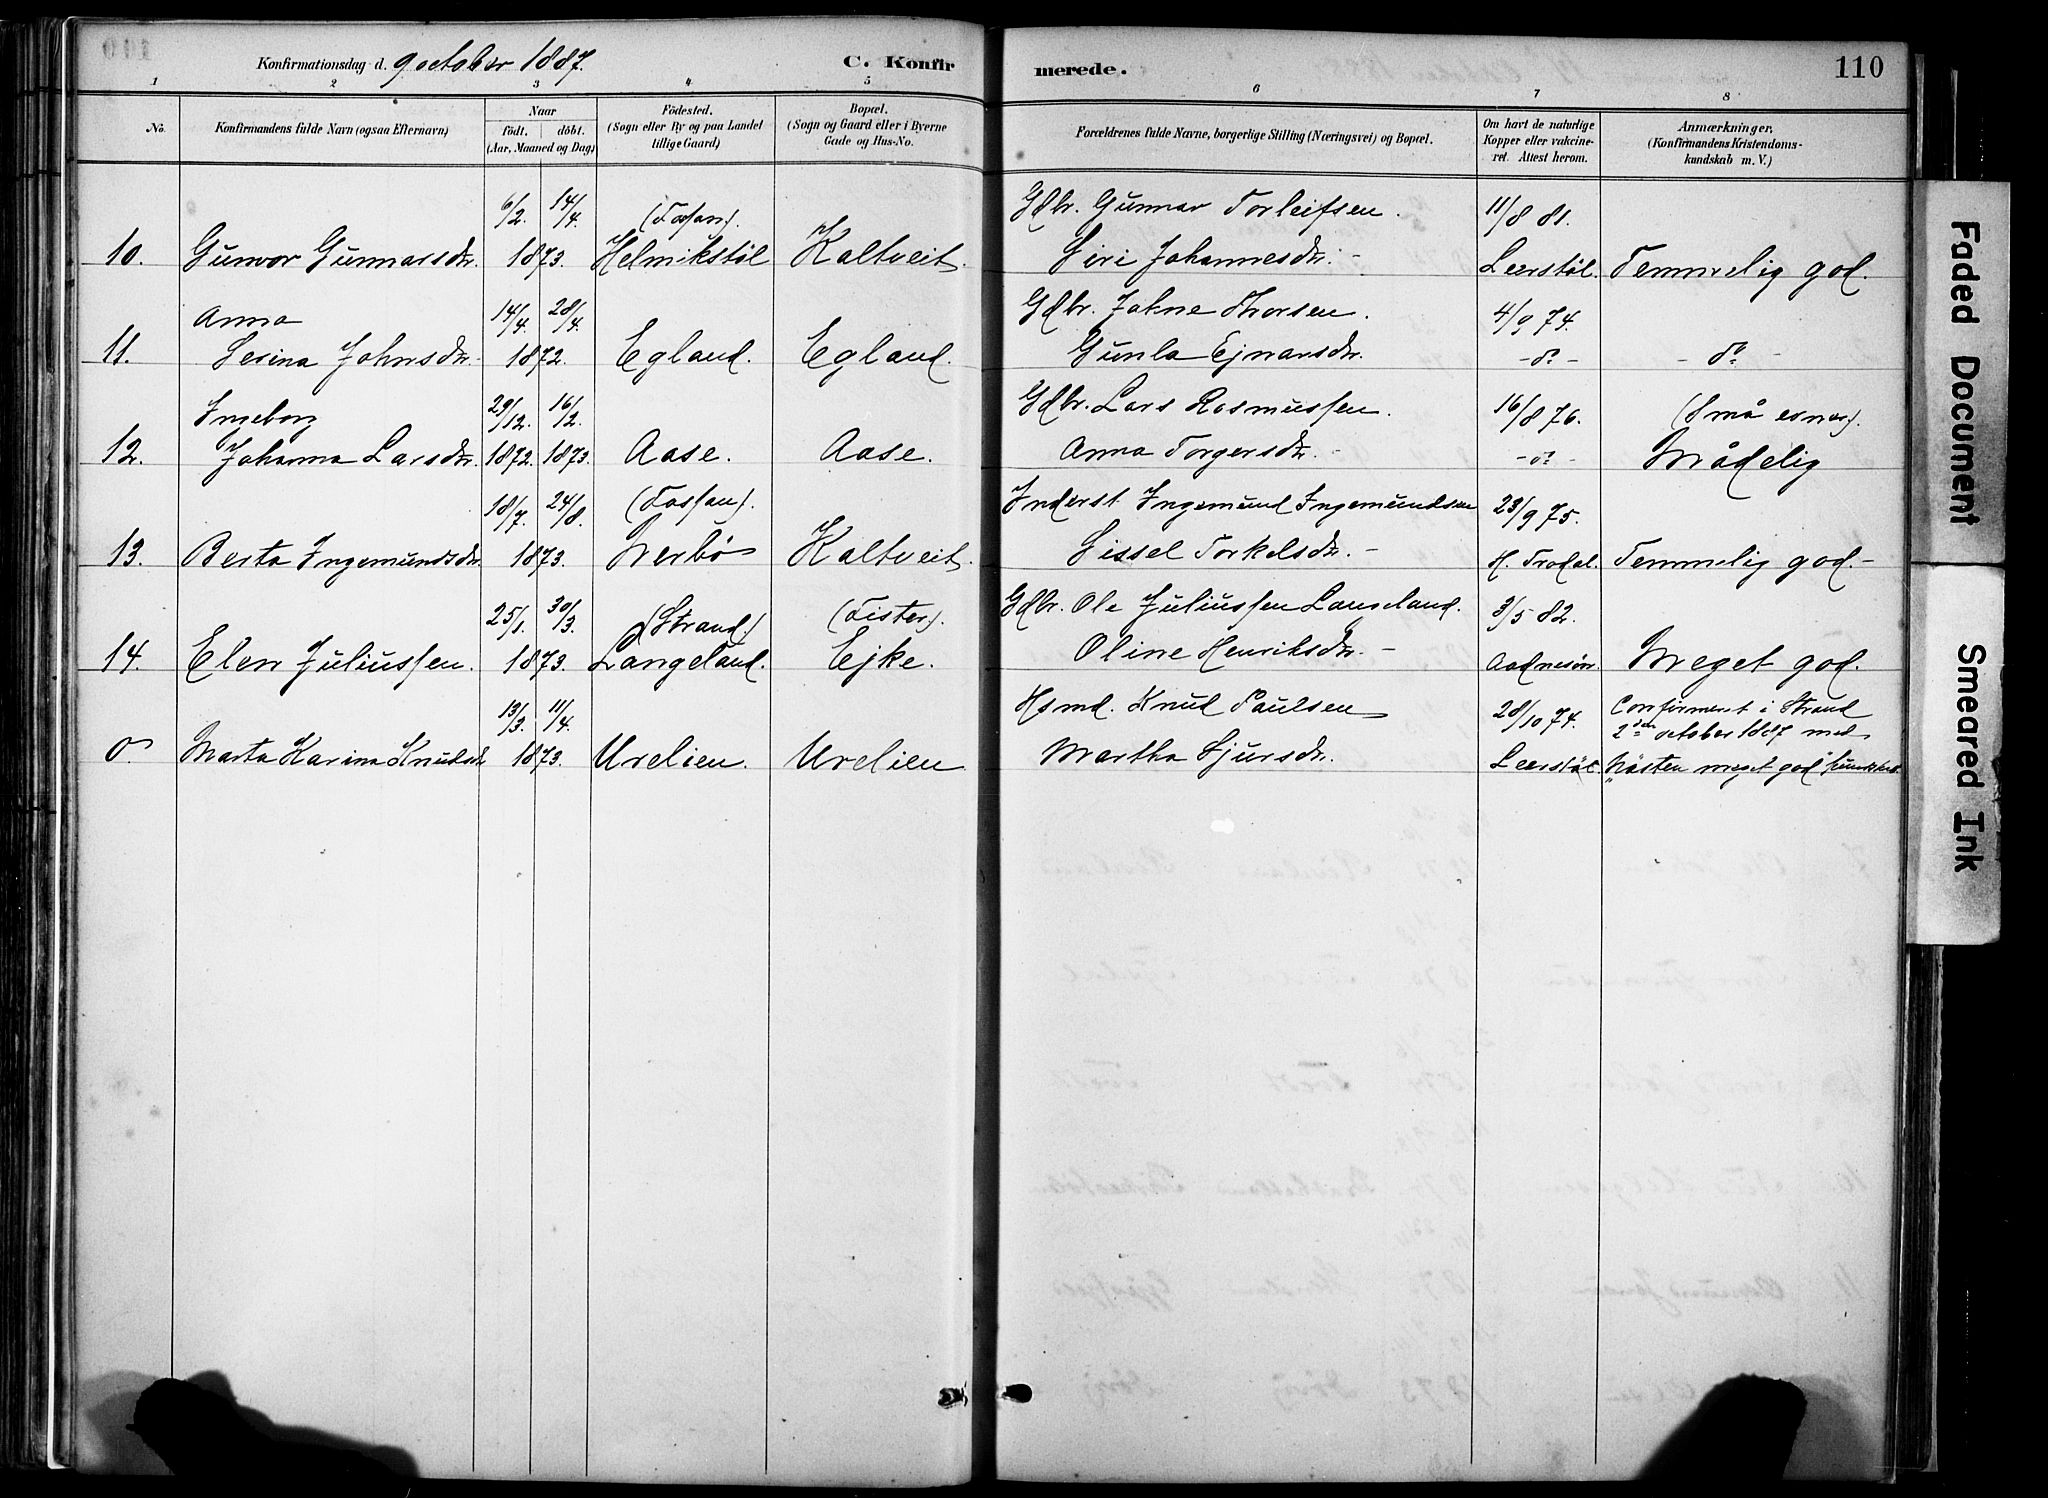 Konfirmationsdag d. 9 october 1887. C. Konfirmerede. 110
1 2 3 4 5 6 7 8
No. Konfirmandens fulde Navn (ogsaa Efternavn) Naar födt. döbt. (Aar, Maaned og Dag) Födested. (Sogn eller By og paa Landet tillige Gaard) Bopæl. (Sogn og Gaard eller i Byerne Gade og Hus-No. Forældrenes fulde Navne, borgerlige Stilling (Næringsvei) og Bopæl. Om havt de naturlige Kopper eller vakcineret. Attest herom. Anmærkninger. (Konfirmandens Kristendomskundskab m. V.)
6/2. 14/4. (Fossan). Gdbr. Gunnar Torleifsen. 11/8 81.
10. Gunvor Gunnarsdr. 1873. Helmikstöl Kaltveit. Siri Johannesdr. - Leerstöl. Temmelig god.
Anna 14/4. 28/4. Gdbr. Johne Thorsen. 4/9 74.
11. Serina Johnsdr. 1872. Egland. Egland. Gunla Ejnarsdr. - do - - do -
Ingeborg 29/12. 16/2. Gdbr. Lars Rasmussen. 16/8 76. (Små evner).
12. Johanna Larsdr. 1872. 1873. Aase. Aase. Anna Torgersdr. - - do - Mådelig
18/7. 24/8. (Fossan). Inderst Ingemund Ingemundsen 23/9 75.
13. Berta Ingemundsdr. 1873. Nerbö Kaltveit. Sissel Torkelsdr. - H. Trodal. Temmelig god. -
25/1. 30/3. (Strand.) (Fister). Gdbr. Ole Juliussen Langeland. 3/5 82.
14. Elen Juliussen. 1873. Langeland. Ejke. Oline Henriksdr. - Aadnesön. Meget god.
13/3. 11/4. Hsmd. Knud Paulsen 28/10 74. Confirmert i Strand
2den october 1887 med
0. Marta Karina Knudsdr 1873. Urelien. Urelien. Martha Sjursdr. Leerstöl. "Nästen meget god"
Faded Document
Smeared Ink